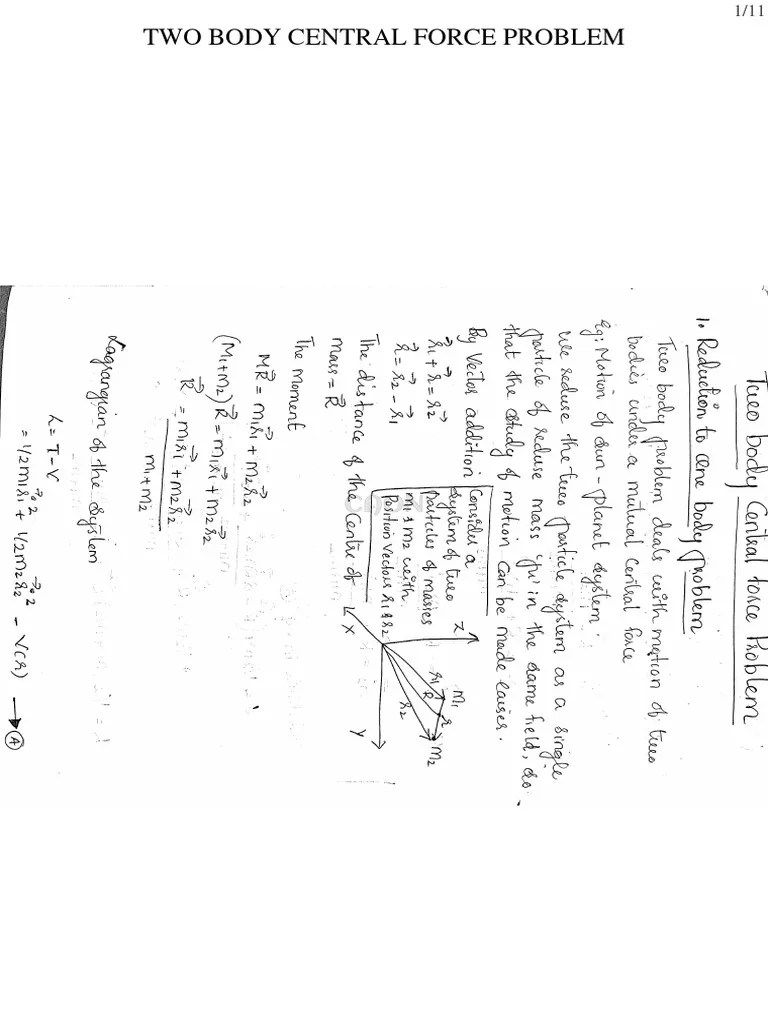 1/11
TWO BODY CENTRAL FORCE PROBLEM
Two body Central force Problem
1. Reduction to one body problem
Two body problem deals with motion of two
bodies under a mutual central force
Eg: Motion of sun - planet system.
We reduse the two particle system as a single
particle of reduse mass 'μ' in the same field, so
that the study of motion can be made easier.
By Vector addition
r⃗1 + r⃗ = r⃗2
r⃗ = r⃗2 - r⃗1
Consider a
system of two
Particles of masses
m1 & m2 with
Position vectors r1 & r2
Z
m1
r1
R
r
m2
r2
X
Y
The distance of the Centre of
mass = R⃗
The moment
MR⃗ = m1r⃗1 + m2r⃗2
(M1+m2) R⃗ = m1r⃗1 + m2r⃗2
R⃗ = m1r⃗1 + m2r⃗2
m1+m2
Lagrangian of the system
L = T - V
= 1/2 m1ṙ⃗1² + 1/2 m2ṙ⃗2² - V(r) → A